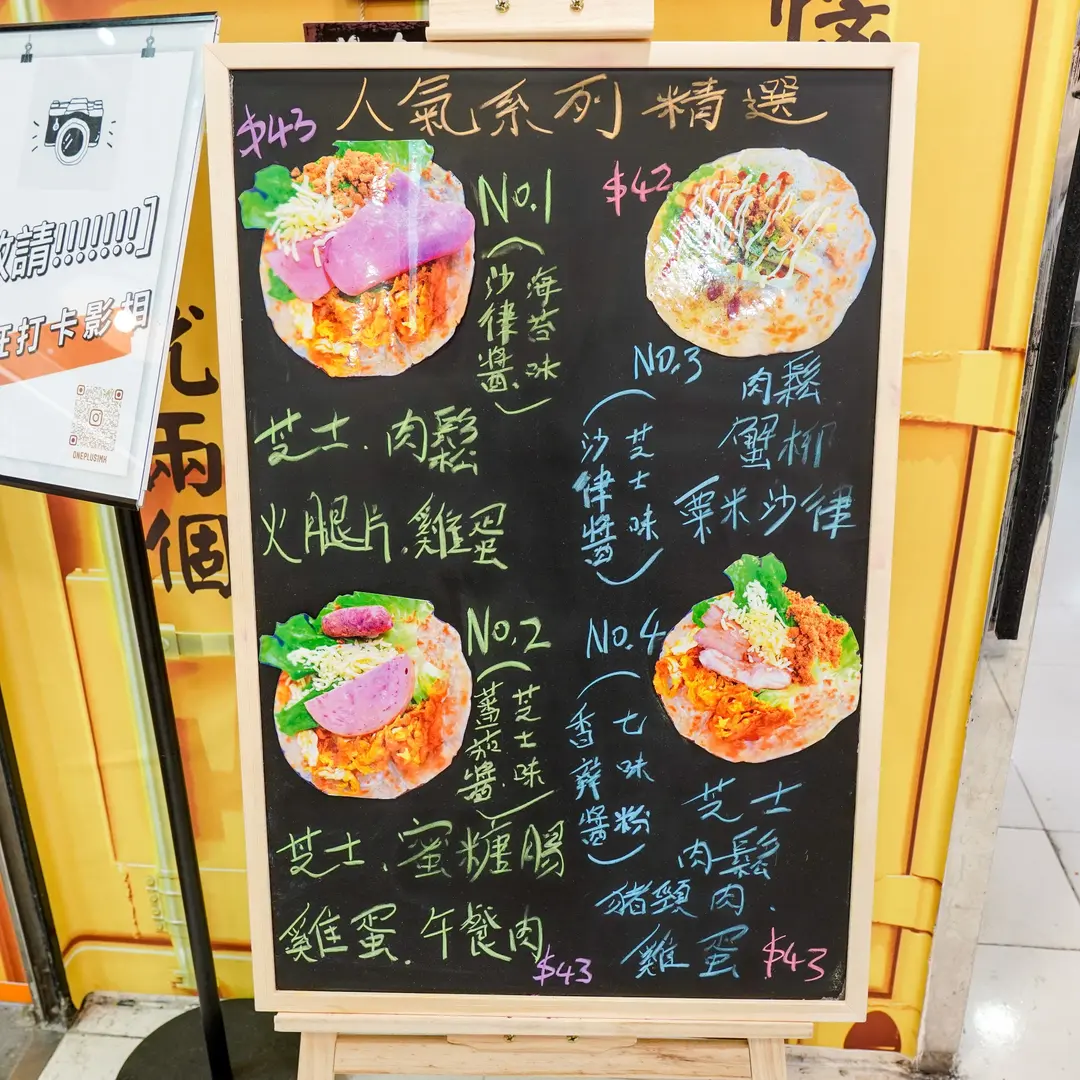 人氣系列精選
$43
No.1
(海苔味
沙律醬)
芝士.肉鬆
火腿片.雞蛋
$42
No.3
(芝士味
沙律醬)
肉鬆
蟹柳
粟米沙律
No.2
(芝士味
蕃茄醬)
芝士.蜜糖腸
雞蛋.午餐肉
$43
No.4
(七味粉
香辣醬)
芝士
肉鬆
豬頸肉.
雞蛋
$43
請!!!!!!!]
打卡影相
ONEPLUS1MK
兩
個